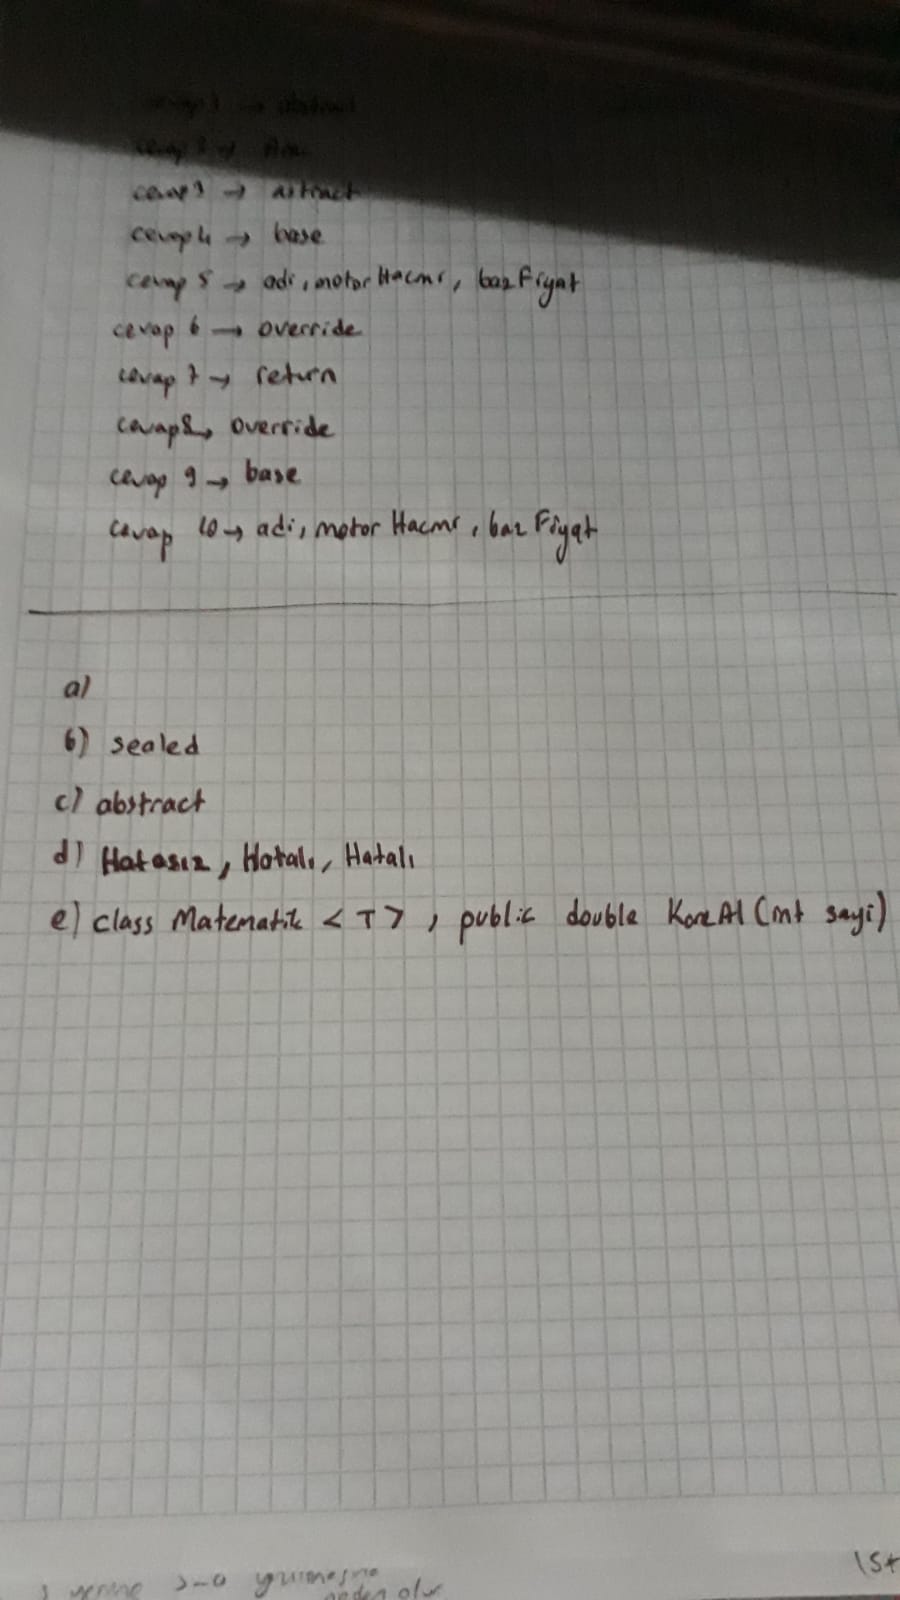 cevap 1 → abstract
cevap 2 →
cevap 3 → astract
cevap 4 → base
cevap 5 → adi, motorHacmi, bazFiyat
cevap 6 → override
cevap 7 → return
cevap 8 → override
cevap 9 → base
cevap 10 → adi, motorHacmi, bazFiyat
a)
b) sealed
c) abstract
d) Hatasız, Hatalı, Hatalı
e) class Matematik <T>, public double KareAl (int sayi)